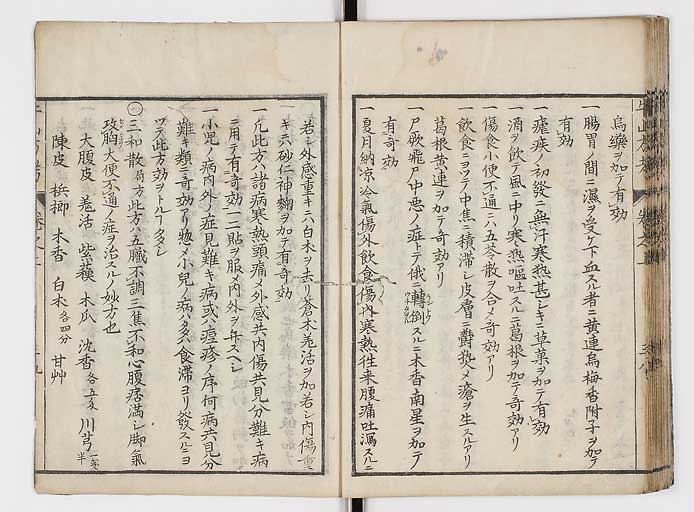 烏藥ヲ加テ有効
一 腸胃ノ間ニ濕ヲ受ケ下血スル者ニ黄連烏梅香附子ヲ加テ
有効
一 瘧疾ノ初發ニ無汗寒熱甚シキニ草菓ヲ加テ有効
一 酒ヲ飲テ風ニ中リ寒熱嘔吐スルニ葛根ヲ加テ奇効アリ
一 傷食小便不通ニハ五苓散ヲ合メ奇効アリ
一 飲食ニヨツテ中焦ニ積滞シ皮膚ニ欝熱メ瘡ヲ生スルアリ
葛根黄連ヲ加テ奇効アリ
一 尸厥飛尸中悪ノ症トテ俄ニ轉倒スルニ木香南星ヲ加テ
有奇効
一 夏月納凉冷氣傷外飲食傷内寒熱往来腹痛吐瀉スルニ
若シ外感重キニハ白朮ヲ去リ蒼朮羌活ヲ加若シ内傷重
キニハ砂仁神麴ヲ加テ有奇効
一 凡此方ハ諸病寒熱頭痛メ外感共内傷共見分難キ病
ニ用テ有奇効一二貼ヲ服メ内外ヲ弁スヘシ
一 小児ノ病内外ノ症見難キ病或ハ痘疹ノ序何病共見分
難キ類ニ奇効アリ惣メ小児ノ病ハ多ハ食滞ヨリ發スルニヨ
ツテ此方効ヲトルヿタメシ
〇三和散 局方 此方ハ五臓不調三焦不和心腹痞満シ脚氣
攻胸大便不通ノ症ヲ治スルノ妙方也
大腹皮 羌活 紫蘓 木瓜 沈香 各五分 川芎 一銭半
陳皮 梹榔 木香 白朮 各四分 甘艸